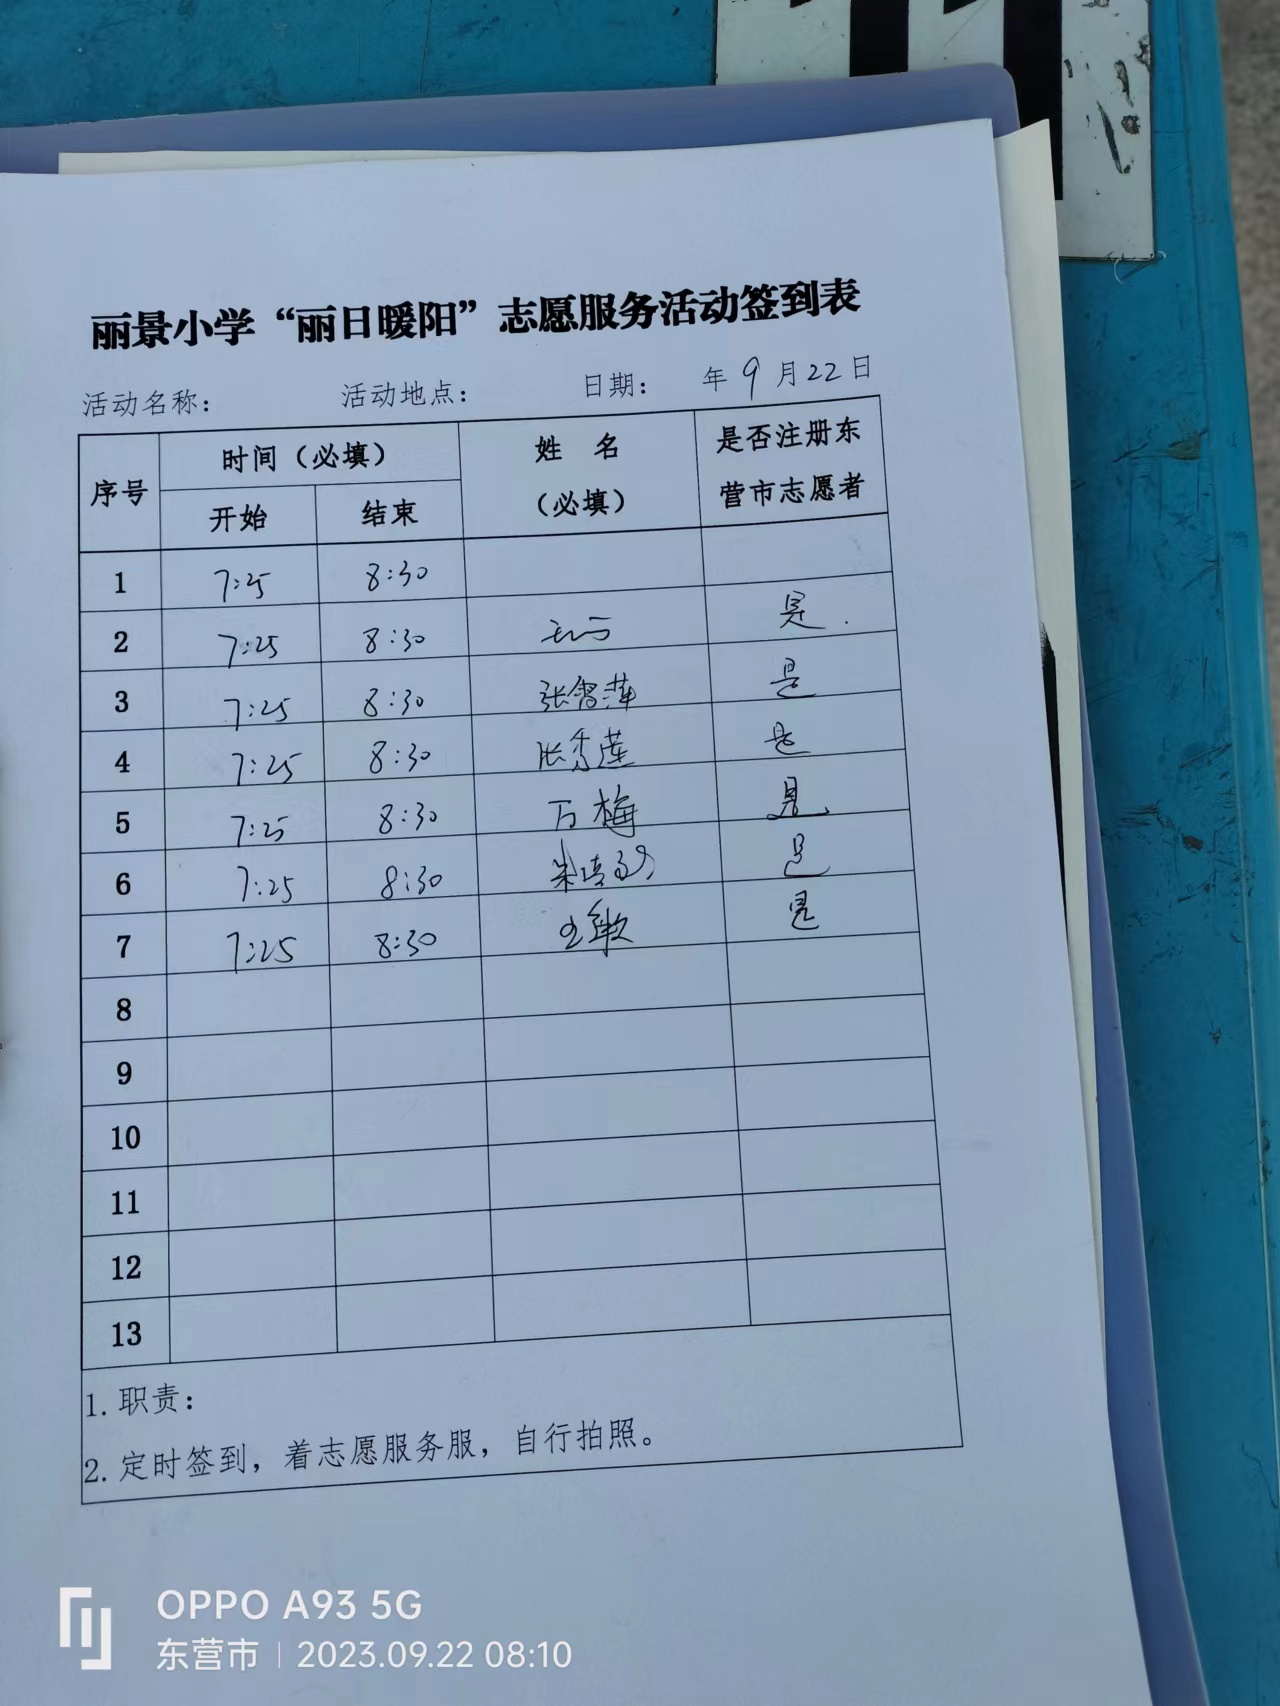 11
丽景小学“丽日暖阳”志愿服务活动签到表
活动名称： 活动地点： 日期： 年 9 月 22 日
序号 时间（必填） 姓 名（必填） 是否注册东营市志愿者
开始 结束
1 7:25 8:30
2 7:25 8:30 是
3 7:25 8:30 张 萍 是
4 7:25 8:30 张秀莲 是
5 7:25 8:30 万梅 是
6 7:25 8:30 朱 是
7 7:25 8:30 王敏 是
8
9
10
11
12
13
1.职责：
2.定时签到，着志愿服务服，自行拍照。
OPPO A93 5G
东营市 | 2023.09.22 08:10